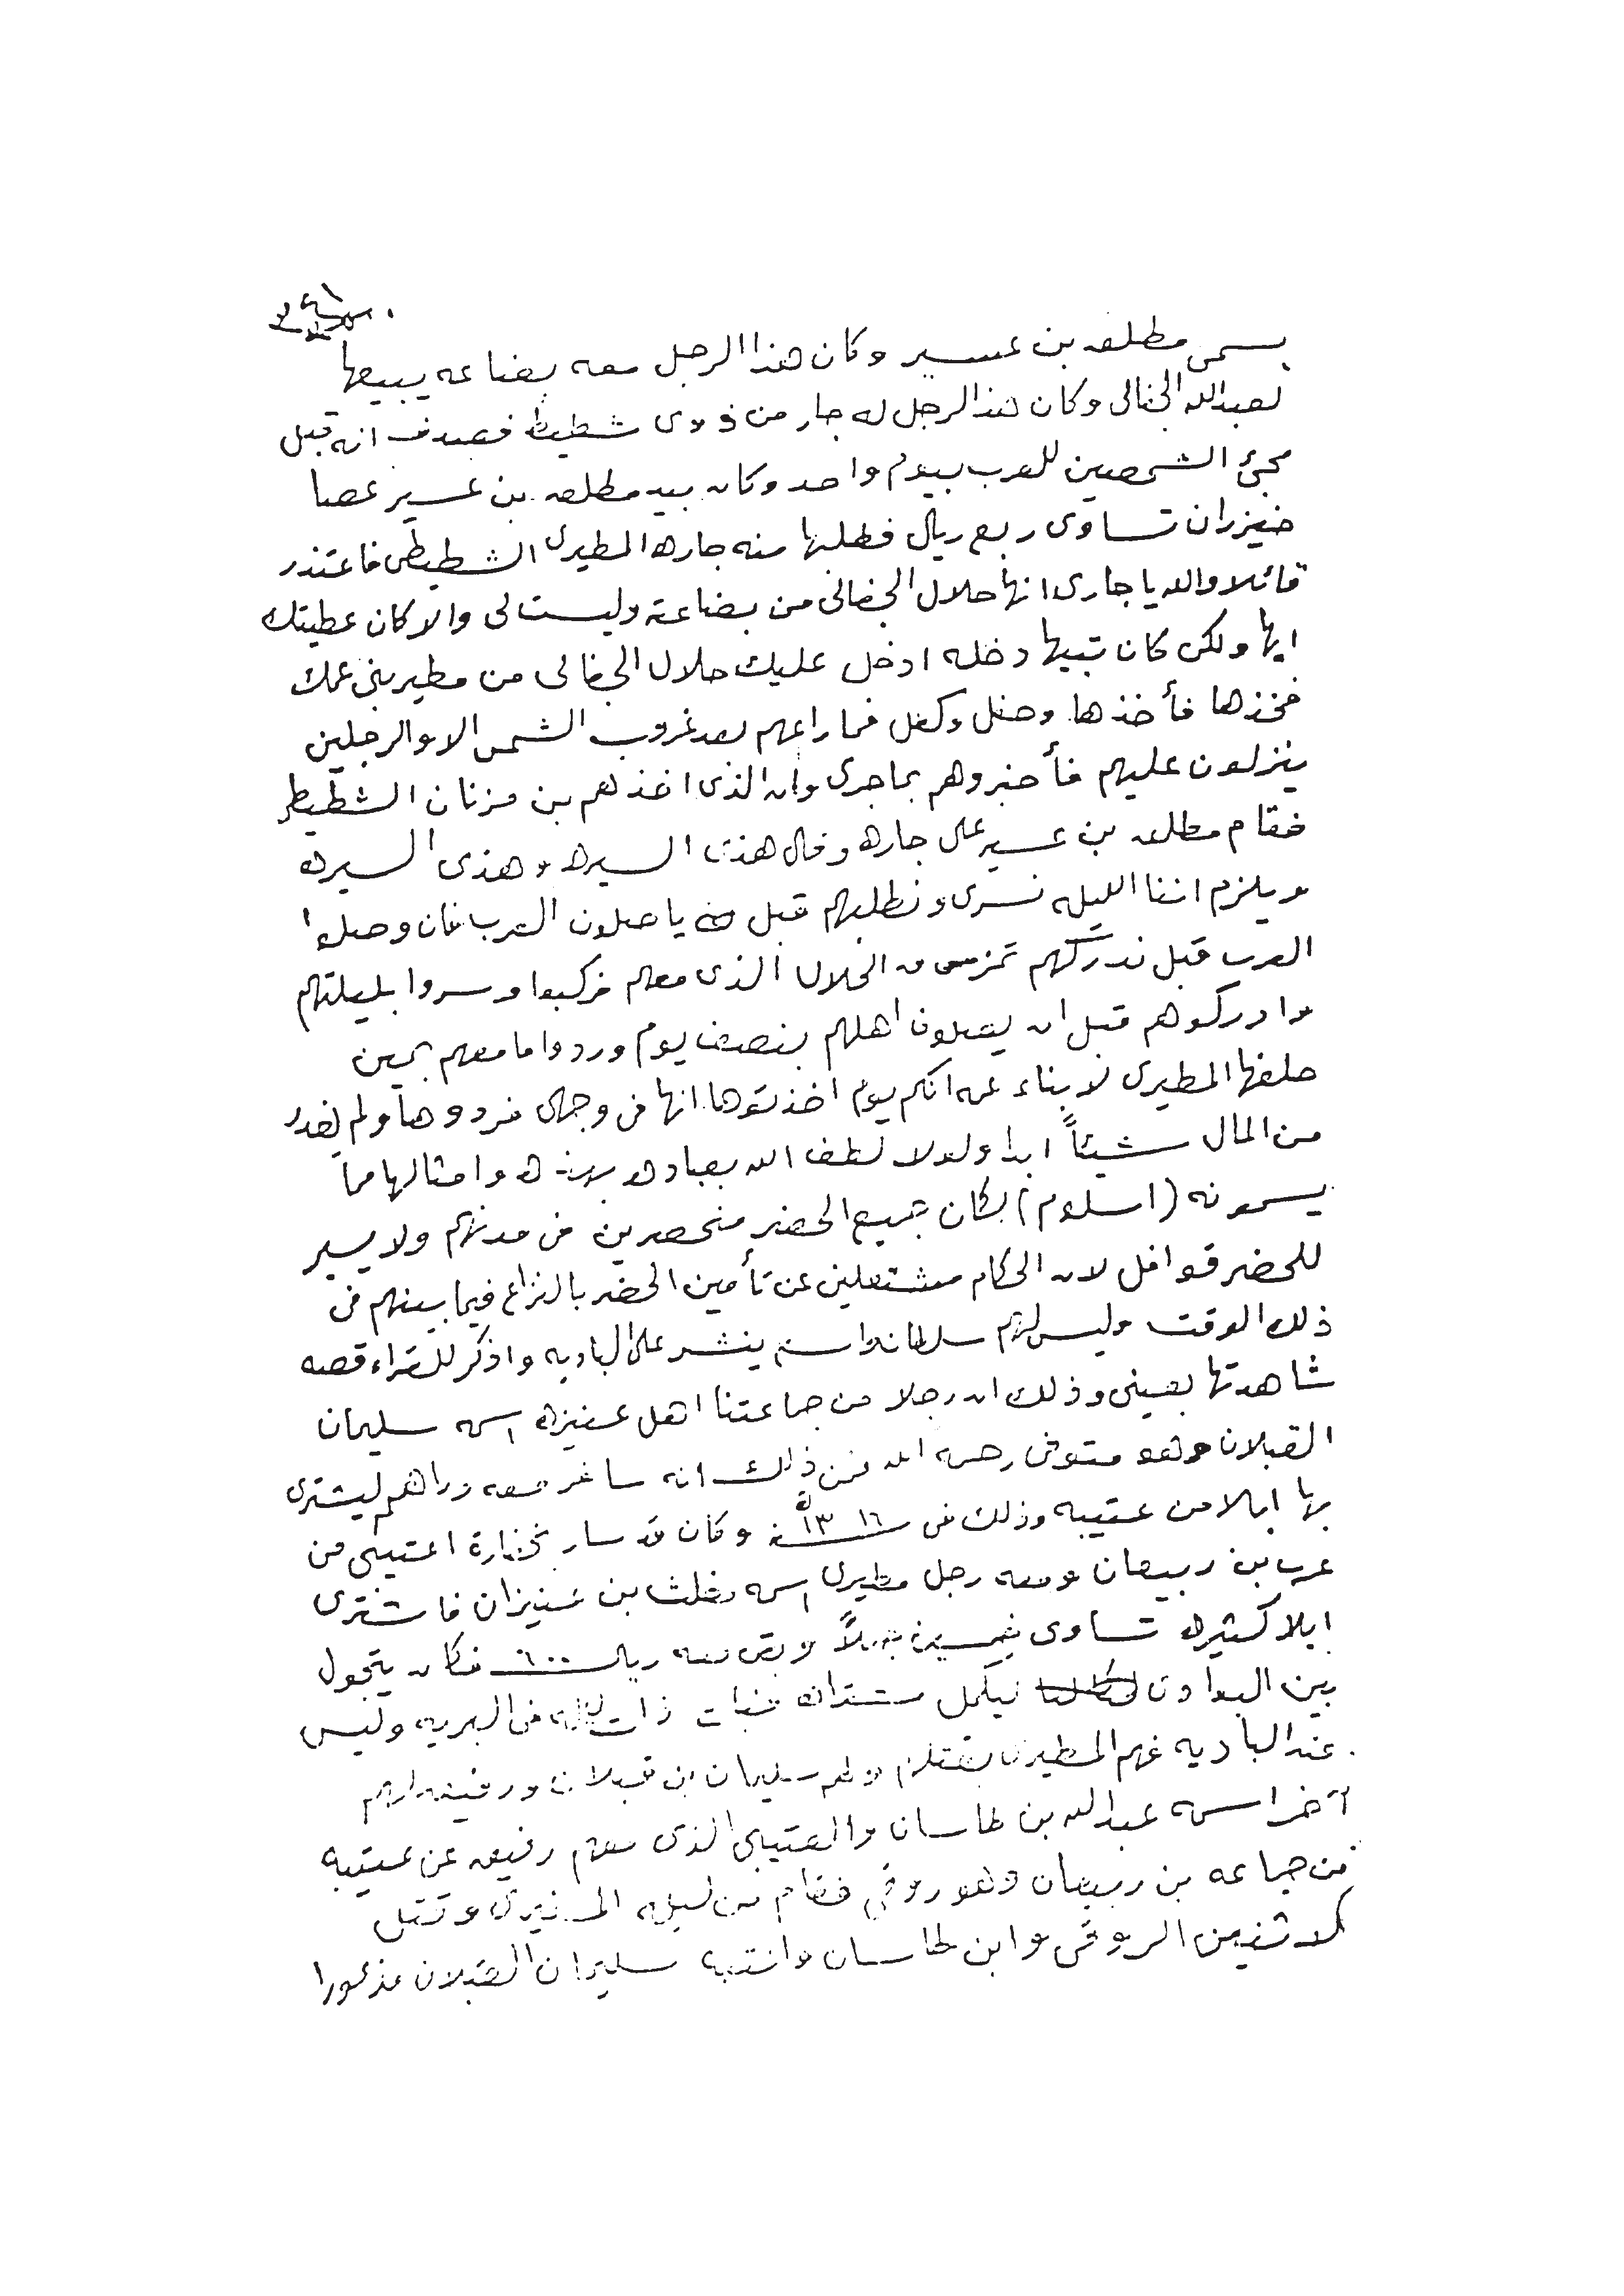 يسمى مطلق بن عسير وكان هذا الرجل معه بضاعه يبيعها
لعبدالله الخفالى وكان هذا الرجل له جار من ذوى شطيط فصدف انه قبل
مجئ الشخصين للعرب بيوم واحد وكان بيد مطلق بن عسير عصا
خيزران تساوى ربع ريال فطلبها منه جاره المطيرى الشطيطى فاعتذر
قائلا والله يا جارى انها حلال الجفالى من بضاعته وليست لى والا كان عطيتك
ايها ولكن كان تبيها دخله ادخل عليك حلال الجفالى من مطير بنى عمك
فخذها فأخذها ودخل وكفل فما راعهم بعد غروب الشمس الا والرجلين
ينزلون عليهم فأخبروهم بما جرى وان الذى اخذهم بن مزنان الشطيطى
فقام مطلق بن عسير على جاره وقال هذى السيره وهذى السيره
ويلزم اننا الليله نسرى ونطلبهم قبل ياصلون العرب فان وصلوا
العرب قبل ندركهم الحلال الذى معهم فركبوا وسروا بليلتهم
وادركوهم قبل ان يصلون اهلهم بنصف يوم وردوا ما معهم بيمين
حلفها المطيرى لابناء عمه انكم يوم اخذتوها انها فى وجهى فردوها ولم يغدر
من المال شيئاً ابدا ولولا لطف الله بعباده بهذه وامثالها مما
يسمونه (اسلوم) لكان جميع الحضر منحصرين فى مدنهم ولا يسير
للحضر قوافل لان الحكام مشتغلين عن تأمين الحضر بالنزاع فيما بينهم فى
ذلك الوقت وليس لهم سلطان ينشر على الباديه واذكر للقراء قصه
شاهدتها بعينى وذلك ان رجلا من جماعتنا اهل عنيزه اسمه سليمان
القبلان وهو متوفى رحمه الله فمن ذلك انه سافر معه دراهم ليشترى
بها ابلا من عتيبه وذلك فى سنة ١٣١٦ وكان قد سار بخفارة اعتيبى من
عرب بن ربيعان ومعه رجل مطيرى اسمه بن عنيزان فاشترى
ابلا كثيره تساوى خمسين جملاً وبقى معه ريال ٦٠٠ فكان يتجول
بين البوادى ليكمل مشتراه فبات ذات ليله فى البريه وليس
عند الباديه فهم المطيرى بقتلهم وهم سليمان بن قبلان ورفيق لهم
آخر اسمه عبدالله بن طاسان والعتيبى الذى معهم رفيق عن عتيبه
من جماعه بن ربيعان وهو روقى فقام من ليله المطيرى وقتل
كلاثنين الروقى وابن طاسان وانتبه سليمان القبلان مذعورا